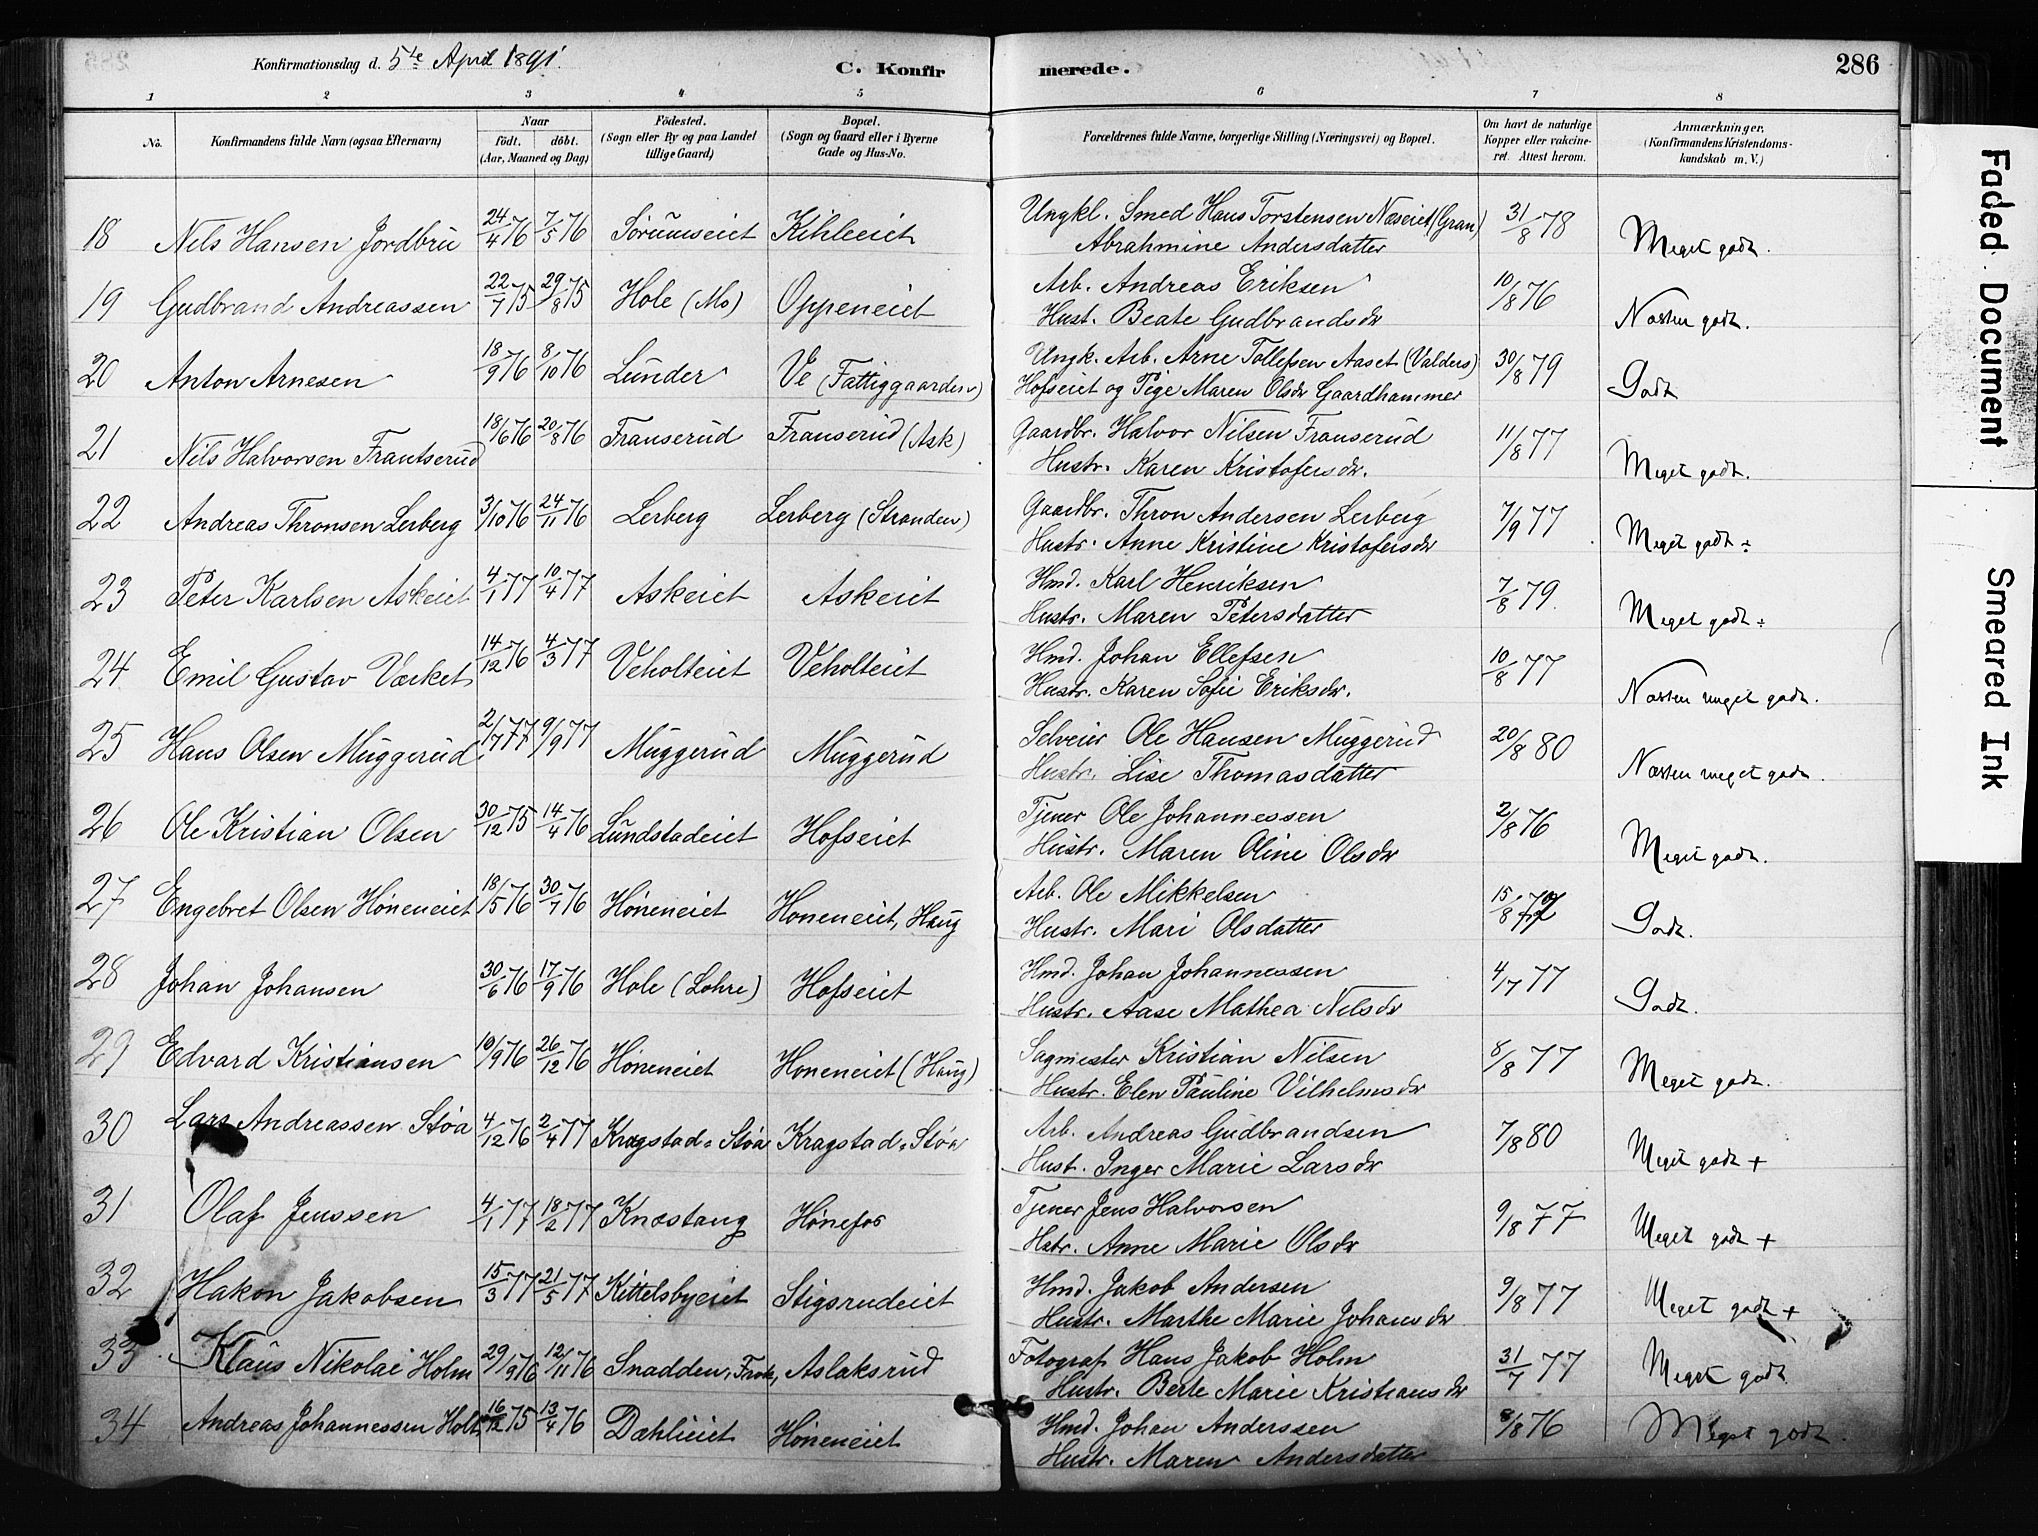 Konfirmationsdag d. 5te April 1891.
C. Konfirmerede.
286
1 2 3 4 5 6 7 8
No. Konfirmandens fulde Navn (ogsaa Efternavn) Naar født. døbt. (Aar, Maaned og Dag) Fødested. (Sogn eller By og paa Landet tillige Gaard) Bopæl. (Sogn og Gaard eller i Byerne Gade og Hus-No. Forældrenes fulde Navne, borgerlige Stilling (Næringsvei) og Bopæl. Om havt de naturlige Kopper eller vakcineret. Attest herom. Anmærkninger. (Konfirmandens Kristendomskundskab m. V.)
18 Nils Hansen Jordbru 24/4 76 7/5 76 Sørumseiet Kihleeiet Ungkl. Smed Hans Torstensen Næseiet (Gran) 31/8 78 Meget godt.
Abrahmine Andersdatter
19 Gudbrand Andreassen 22/7 75 29/8 75 Hole (Mo) Oppeneiet Arb. Andreas Eriksen 10/8 76 Næsten godt.
Hust. Beate Gudbrandsdr
20 Anton Arnesen 18/9 76 8/10 76 Lunder Ve (Fattiggaarden) Ungk. Arb. Arne Tollefsen Aaset (Valders) 30/8 79 Godt
Hofseiet og Pige Maren Olsdr Gaardhammer
21 Nils Halvorsen Frantserud 18/6 76 20/8 76 Franserud Franserud (Ask) Gaardbr. Halvor Nilsen Franserud 11/8 77 Meget godt.
Hustr. Karen Kristofersdr.
22 Andreas Thronsen Lerberg 3/10 76 24/11 76 Lerberg Lerberg (Stranden) Gaardbr. Thron Andersen Lerberg 7/9 77 Meget godt ÷
Hustr. Anne Kristine Kristofersdr
23 Peter Karlsen Askeiet 4/1 77 10/4 77 Askeiet Askeiet Hmd. Karl Henriksen 7/8 79. Meget godt ÷
Hustr. Maren Petersdatter
24 Emil Gustav Værket 14/12 76 4/3 77 Veholteiet Veholteiet Hmd. Johan Ellefsen 10/8 77 Næsten meget godt.
Hustr. Karen Sofie Eriksdr.
25 Hans Olsen Muggerud 2/7 77 9/9 77 Muggerud Muggerud Selveier Ole Hansen Muggerud 20/8 80 Næsten meget godt.
Hustr. Lise Thomasdatter
26 Ole Kristian Olsen 30/12 75 14/4 76 Lundstadeiet Hofseiet Tjener Ole Johannessen 2/8 76 Meget godt.
Hustr. Maren Oline Olsdr
27 Engebret Olsen Høneneiet 18/5 76 30/7 76 Høneneiet Honeneiet, Haug Arb. Ole Mikkelsen 15/8 Godt.
Hustr. Mari Olsdatter
28 Johan Johansen 30/6 76 17/9 76 Hole (Lohre) Hofseiet Hmd. Johan Johannessen 4/7 77 Godt.
Hustr. Aase Mathea Nilsdr
29 Edvard Kristiansen 10/9 76 26/12 76 Høneneiet Honeneiet (Haug) Sagmester Kristian Nilsen 8/8 77 Meget godt.
Hustr. Elen Pauline Vilhelmsdr
30 Lars Andreassen Støa 4/12 76 2/4 77 Kragstad-Støa Kragstad-Støa Arb. Andreas Gudbrandsen 7/8 80 Meget godt +
Hust. Inger Marie Larsdr
31 Olaf Jenssen 4/1 77 18/2 77 Knæstang Hønefos Tjener Jens Halvorsen 9/8 77 Meget godt +
Hstr. Anne Marie Olsdr
32 Hakon Jakobsen 15/3 77 21/5 77 Kittelsbyeiet Stigsrudeiet Hmd. Jakob Andersen 9/8 77 Meget godt +
Hustr. Marthe Marie Johansdr
33 Klaus Nikolai Holm 29/9 76 12/11 76 Snadden, Aslaksrud Fotograf Hans Jakob Holm 31/7 77 Meget godt
Hustr. Berte Marie Kristiansdr
34 Andreas Johannessen Holt 16/12 75 13/4 76 Dæhlieiet Høneneiet Hmd. Johan Anderssen 8/8 76 Meget godt.
Hustr. Maren Andersdatter
Faded Document
Smeared Ink